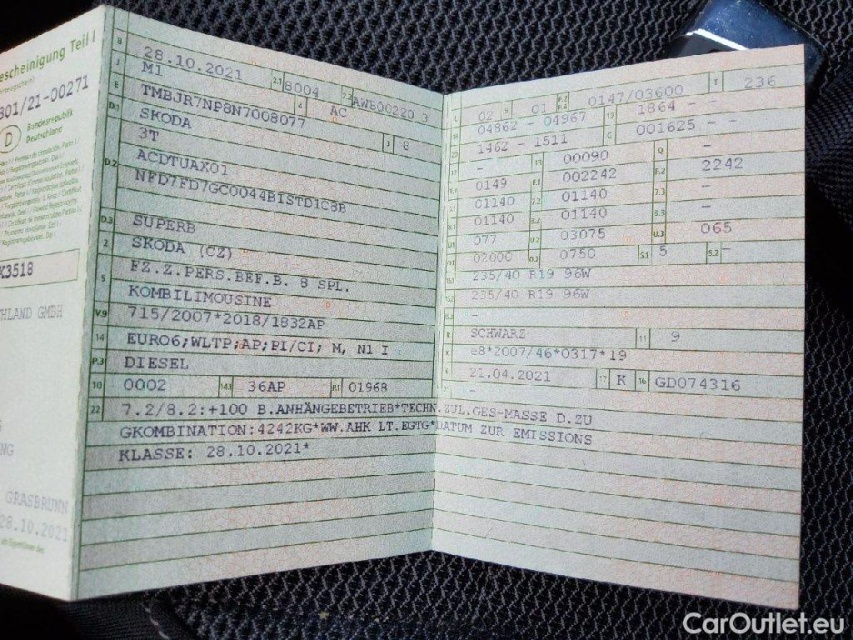 escheinigung Teil I
801/21-00271
D Bundesrepublik
Deutschland
K3518
HLAND GMBH
NG
GRASBRUNN
28.10.2021
B 28.10.2021 2.1 8004 2.2 AWE00220 3
J M1 4 AC
E TMBJR7NP8N7008077 3 8
D.1 SKODA
3T
D.2 ACDTUAX01
NFD7FD7GC0044BISTD1C8B
D.3 SUPERB
2 SKODA (CZ)
5 FZ.Z.PERS.BEF.B. 8 SPL.
KOMBILIMOUSINE
V.9 715/2007*2018/1832AP
14 EURO6;WLTP;AP;PI/CI; M, N1 I
P.3 DIESEL
10 0002 14.1 36AP P.1 01968
22 7.2/8.2:+100 B.ANHÄNGEBETRIEB*TECHN.ZUL.GES-MASSE D.ZU
GKOMBINATION:4242KG*WW.AHK LT.EGTG*DATUM ZUR EMISSIONS
KLASSE: 28.10.2021*
02 9 01 P.2 0147/03600 T 236
04862 - 04967 1864 - -
1462 - 1511 001625 - -
- 00090 Q -
0149 002242 2242
01140 01140 -
01140 01140 -
077 03075 U.3 065
02000 0750 S.1 5 S.2 -
235/40 R19 96W
235/40 R19 96W
-
SCHWARZ 11 9
e8*2007/46*0317*19
21.04.2021 17 K 16 GD074316
-
CarOutlet.eu